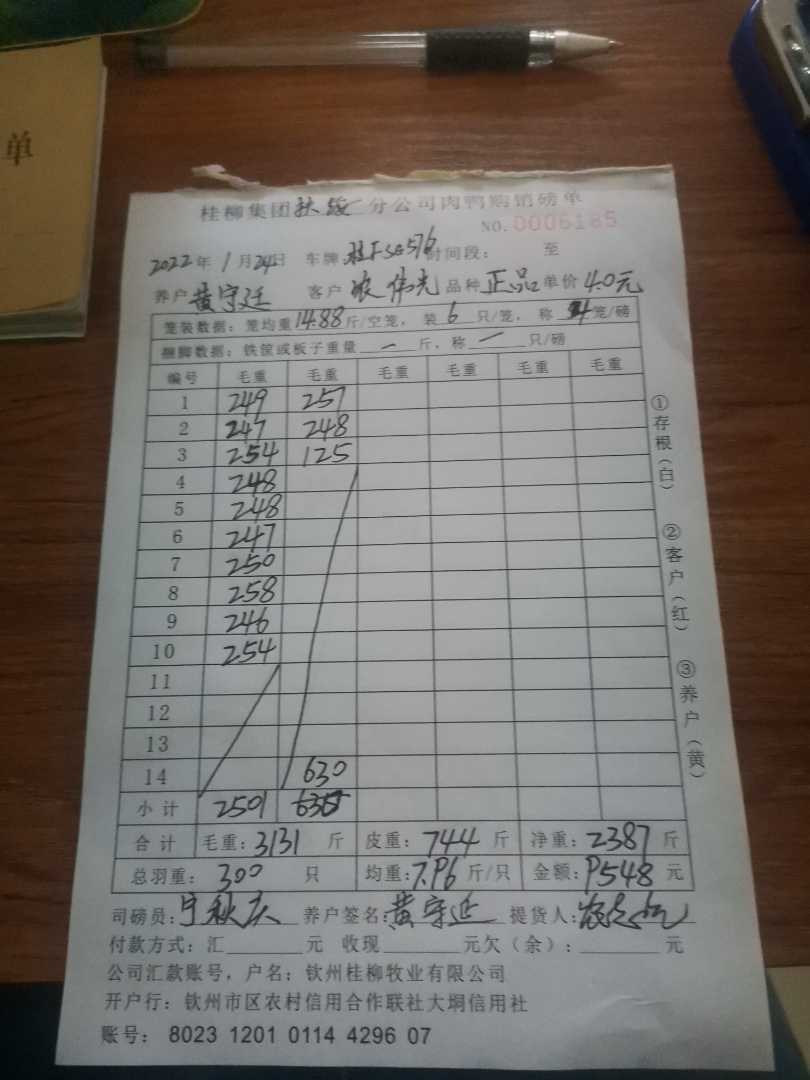 单
桂柳集团扶绥分公司肉鸭购销磅单
NO. 0006185
2022年1月24日 车牌:桂FSG576 时间段: 至
养户 黄守廷 客户 农伟光 品种 正品 单价 4.0元
笼装数据:笼均重14.88斤/空笼,装6只/笼,称4笼/磅
捆脚数据:铁筐或板子重量 — 斤,称 — 只/磅
编号 毛重 毛重 毛重 毛重 毛重 毛重
1 249 257
2 247 248
3 254 125
4 248
5 248
6 247
7 250
8 258
9 246
10 254
11
12
13
14 630
小计 2501
合计 毛重:3131斤 皮重:744斤 净重:2387斤
总羽重:300只 均重:7.96斤/只 金额:9548元
司磅员:宁秋庆 养户签名:黄守廷 提货人:
付款方式:汇 元 收现 元欠(余): 元
公司汇款账号,户名:钦州桂柳牧业有限公司
开户行:钦州市区农村信用合作联社大垌信用社
账号: 8023 1201 0114 4296 07
①存根(白)
②客户(红)
③养户(黄)